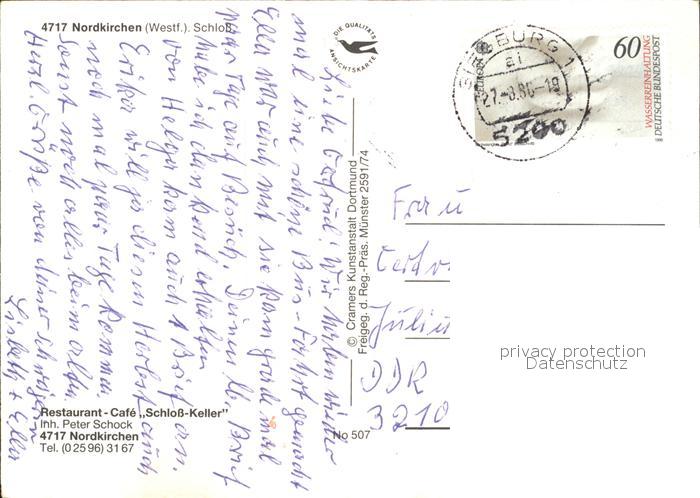 4717 Nordkirchen (Westf.). Schloß.
DIE QUALITÄTS
ANSICHTSKARTE
SIEGBURG 1
al
27.-8.86-19
5200
60
WASSERREINHALTUNG
DEUTSCHE BUNDESPOST
Liebe Gertrud! Wir haben wieder
mal eine schöne Bus-Fahrt gemacht
Ella war auch mit sie kam grade mal
paar Tage auf Besuch. Deinen lb. Brief
habe ich dankend erhalten
von Helga kam auch 1 Brief an.
Erika will ja diesen Herbst auch
noch mal paar Tage kommen
Sonst noch alles beim alten.
Herzl Grüße von deiner
Lisbeth + Ella
© Cramers Kunstanstalt Dortmund
Freigeg. d. Reg.-Präs. Münster 2591/74
Frau
Julius
DDR
3210
privacy protection
Datenschutz
Restaurant - Café „Schloß-Keller"
Inh. Peter Schock
4717 Nordkirchen
Tel. (0 25 96) 31 67
No 507